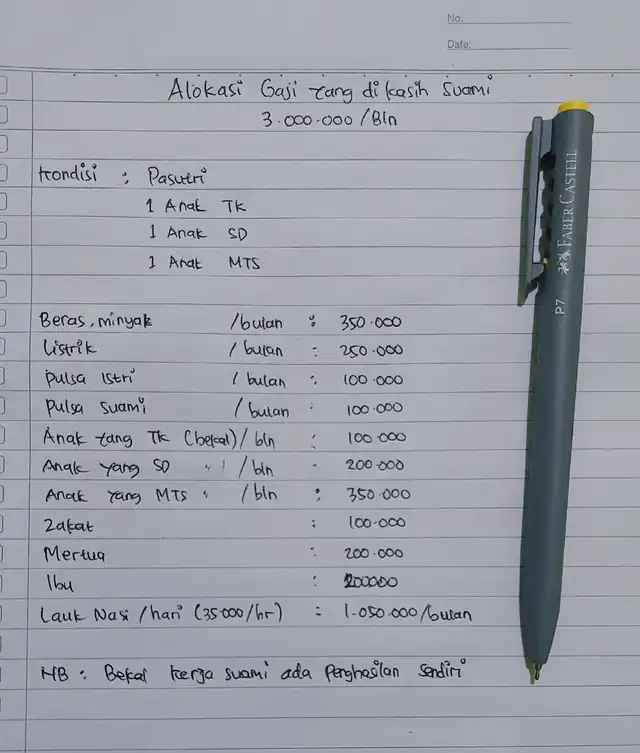 No.
Date:
Alokasi Gaji yang dikasih Suami
3.000.000 /Bln
Kondisi : Pasutri
1 Anak TK
1 Anak SD
1 Anak MTS
Beras, minyak /bulan : 350.000
Listrik /bulan : 250.000
Pulsa Istri /bulan : 100.000
Pulsa Suami /bulan : 100.000
Anak yang TK (bekal) /bln : 100.000
Anak yang SD " /bln - 200.000
Anak yang MTS " /bln : 350.000
Zakat : 100.000
Mertua : 200.000
Ibu : 200000
Lauk Nasi /hari (35.000/hr) : 1.050.000/bulan
NB : Bekal kerja suami ada Penghasilan Sendiri
FABER CASTELL
P7